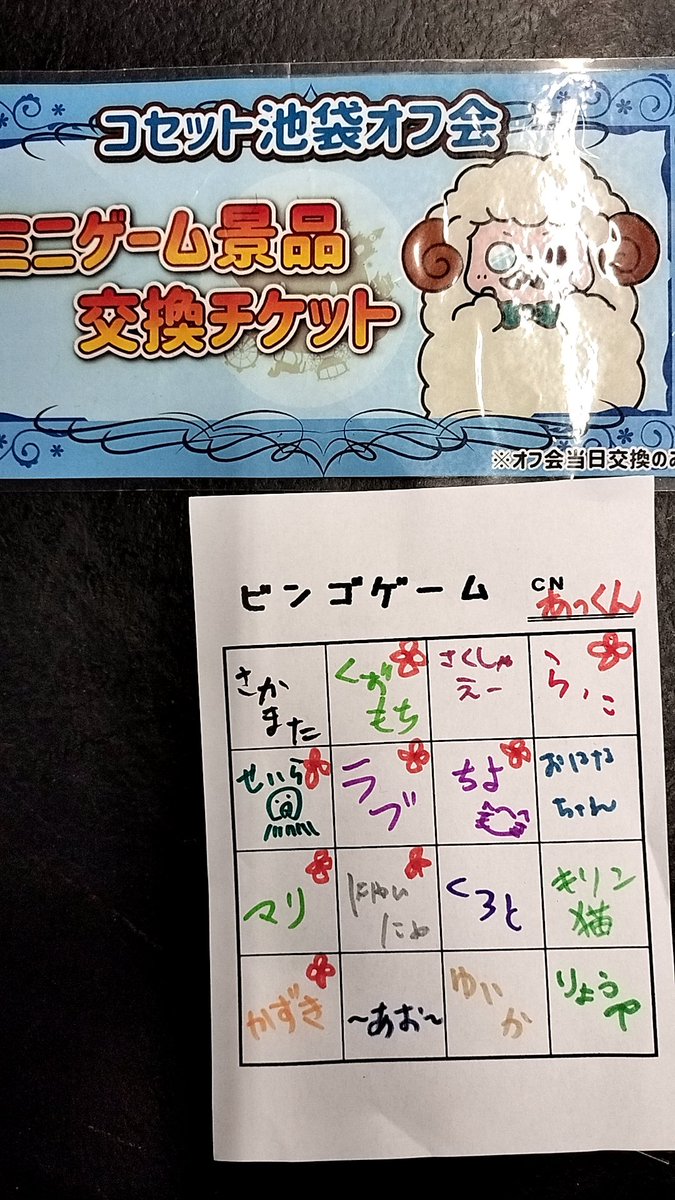 コセット池袋オフ会
ミニゲーム景品
交換チケット
※オフ会当日交換のみ
ビンゴゲーム
CN
あっくん
さか
また
くずもち
さくしゃ
えー
らいこ
せいら
ラブ
ちよ
おはな
ちゃん
マリ
にゃい
にゃ
くろと
キリン
猫
かずき
〜あお〜
ゆいか
りょうへ